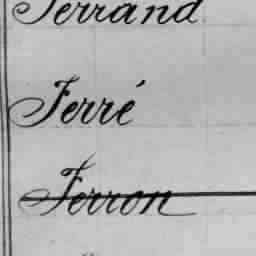 Ferrand
Ferré
Ferron